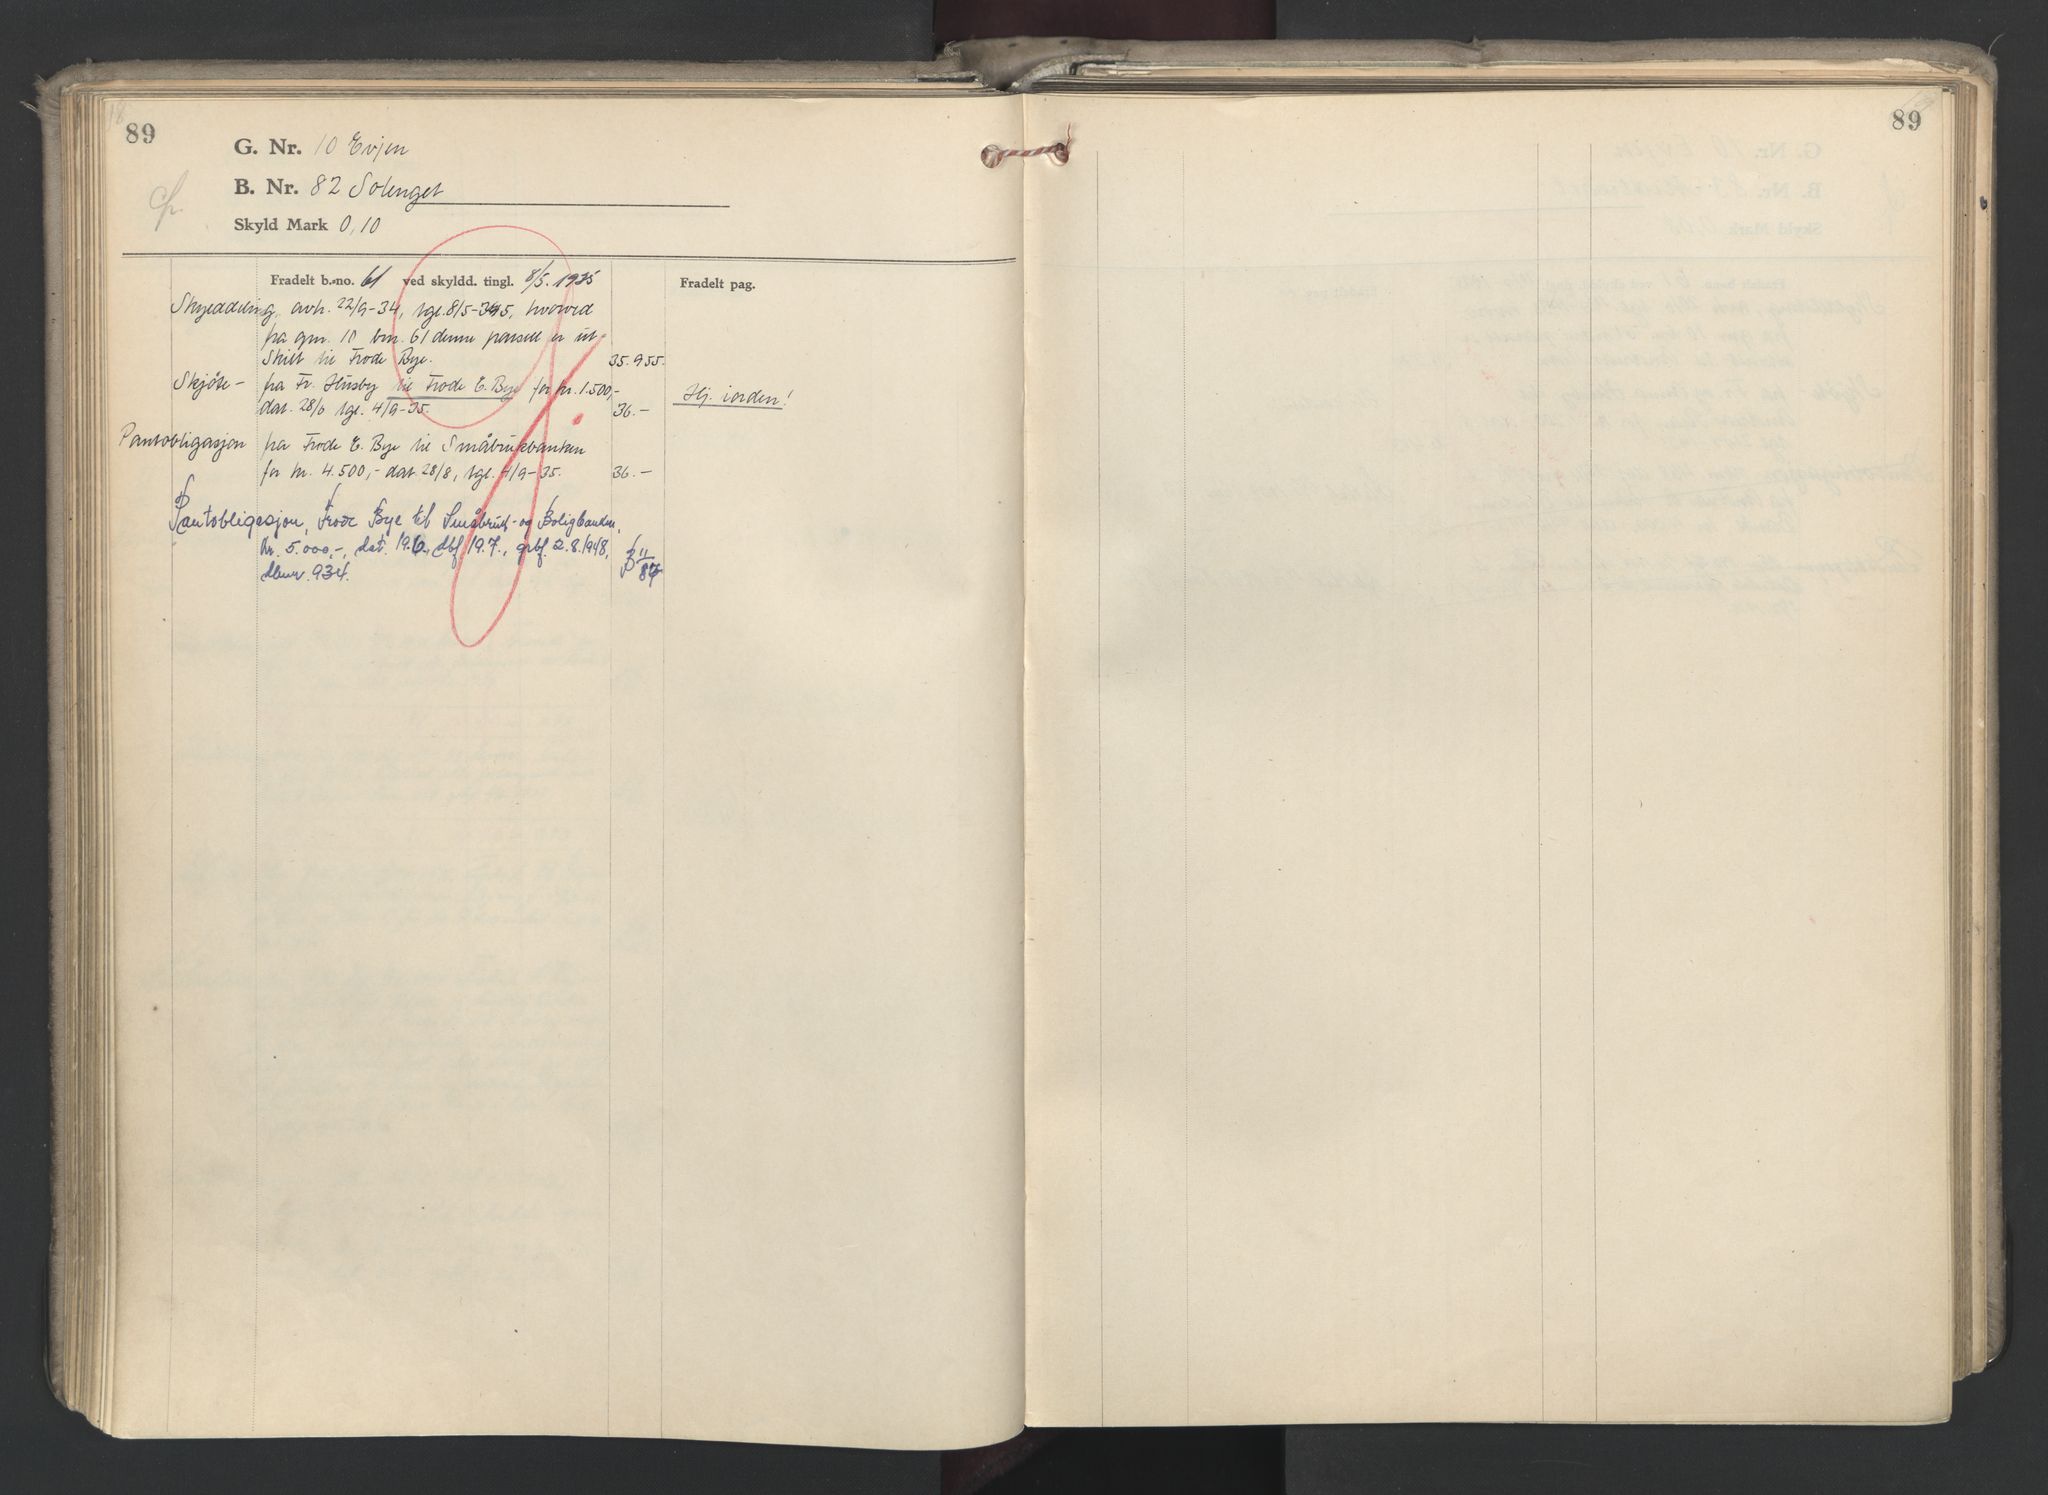 89
G. Nr. 10 Evjen
B. Nr. 82 Solenget
Skyld Mark 0,10
Fradelt b.-no. 61 ved skyldd. tingl. 8/5. 1935
Fradelt pag.
avh. 22/9-34, tgl. 8/5-35, hvorved
fra gnr. 10 bnr. 61 denne parsell er ut-
skilt til Frode Bye. 35. 955.
Skjöte- fra Fr. Husby til Frode E. Bye for kr. 1.500,-
dat. 28/6 tgl. 4/9-35. 36.-
Hj. i orden!
Pantobligasjon fra Frode E. Bye til Småbrukbanken
for kr. 4.500,- dat. 28/8, tgl. 4/9-35. 36.-
Pantobligasjon, Frode Bye til Småbruk- og Boligbanken,
kr. 5.000,-, dat. 19.6., dbf. 19.7., grbf. 2.8.1948,
dbnr. 934. B 11
89